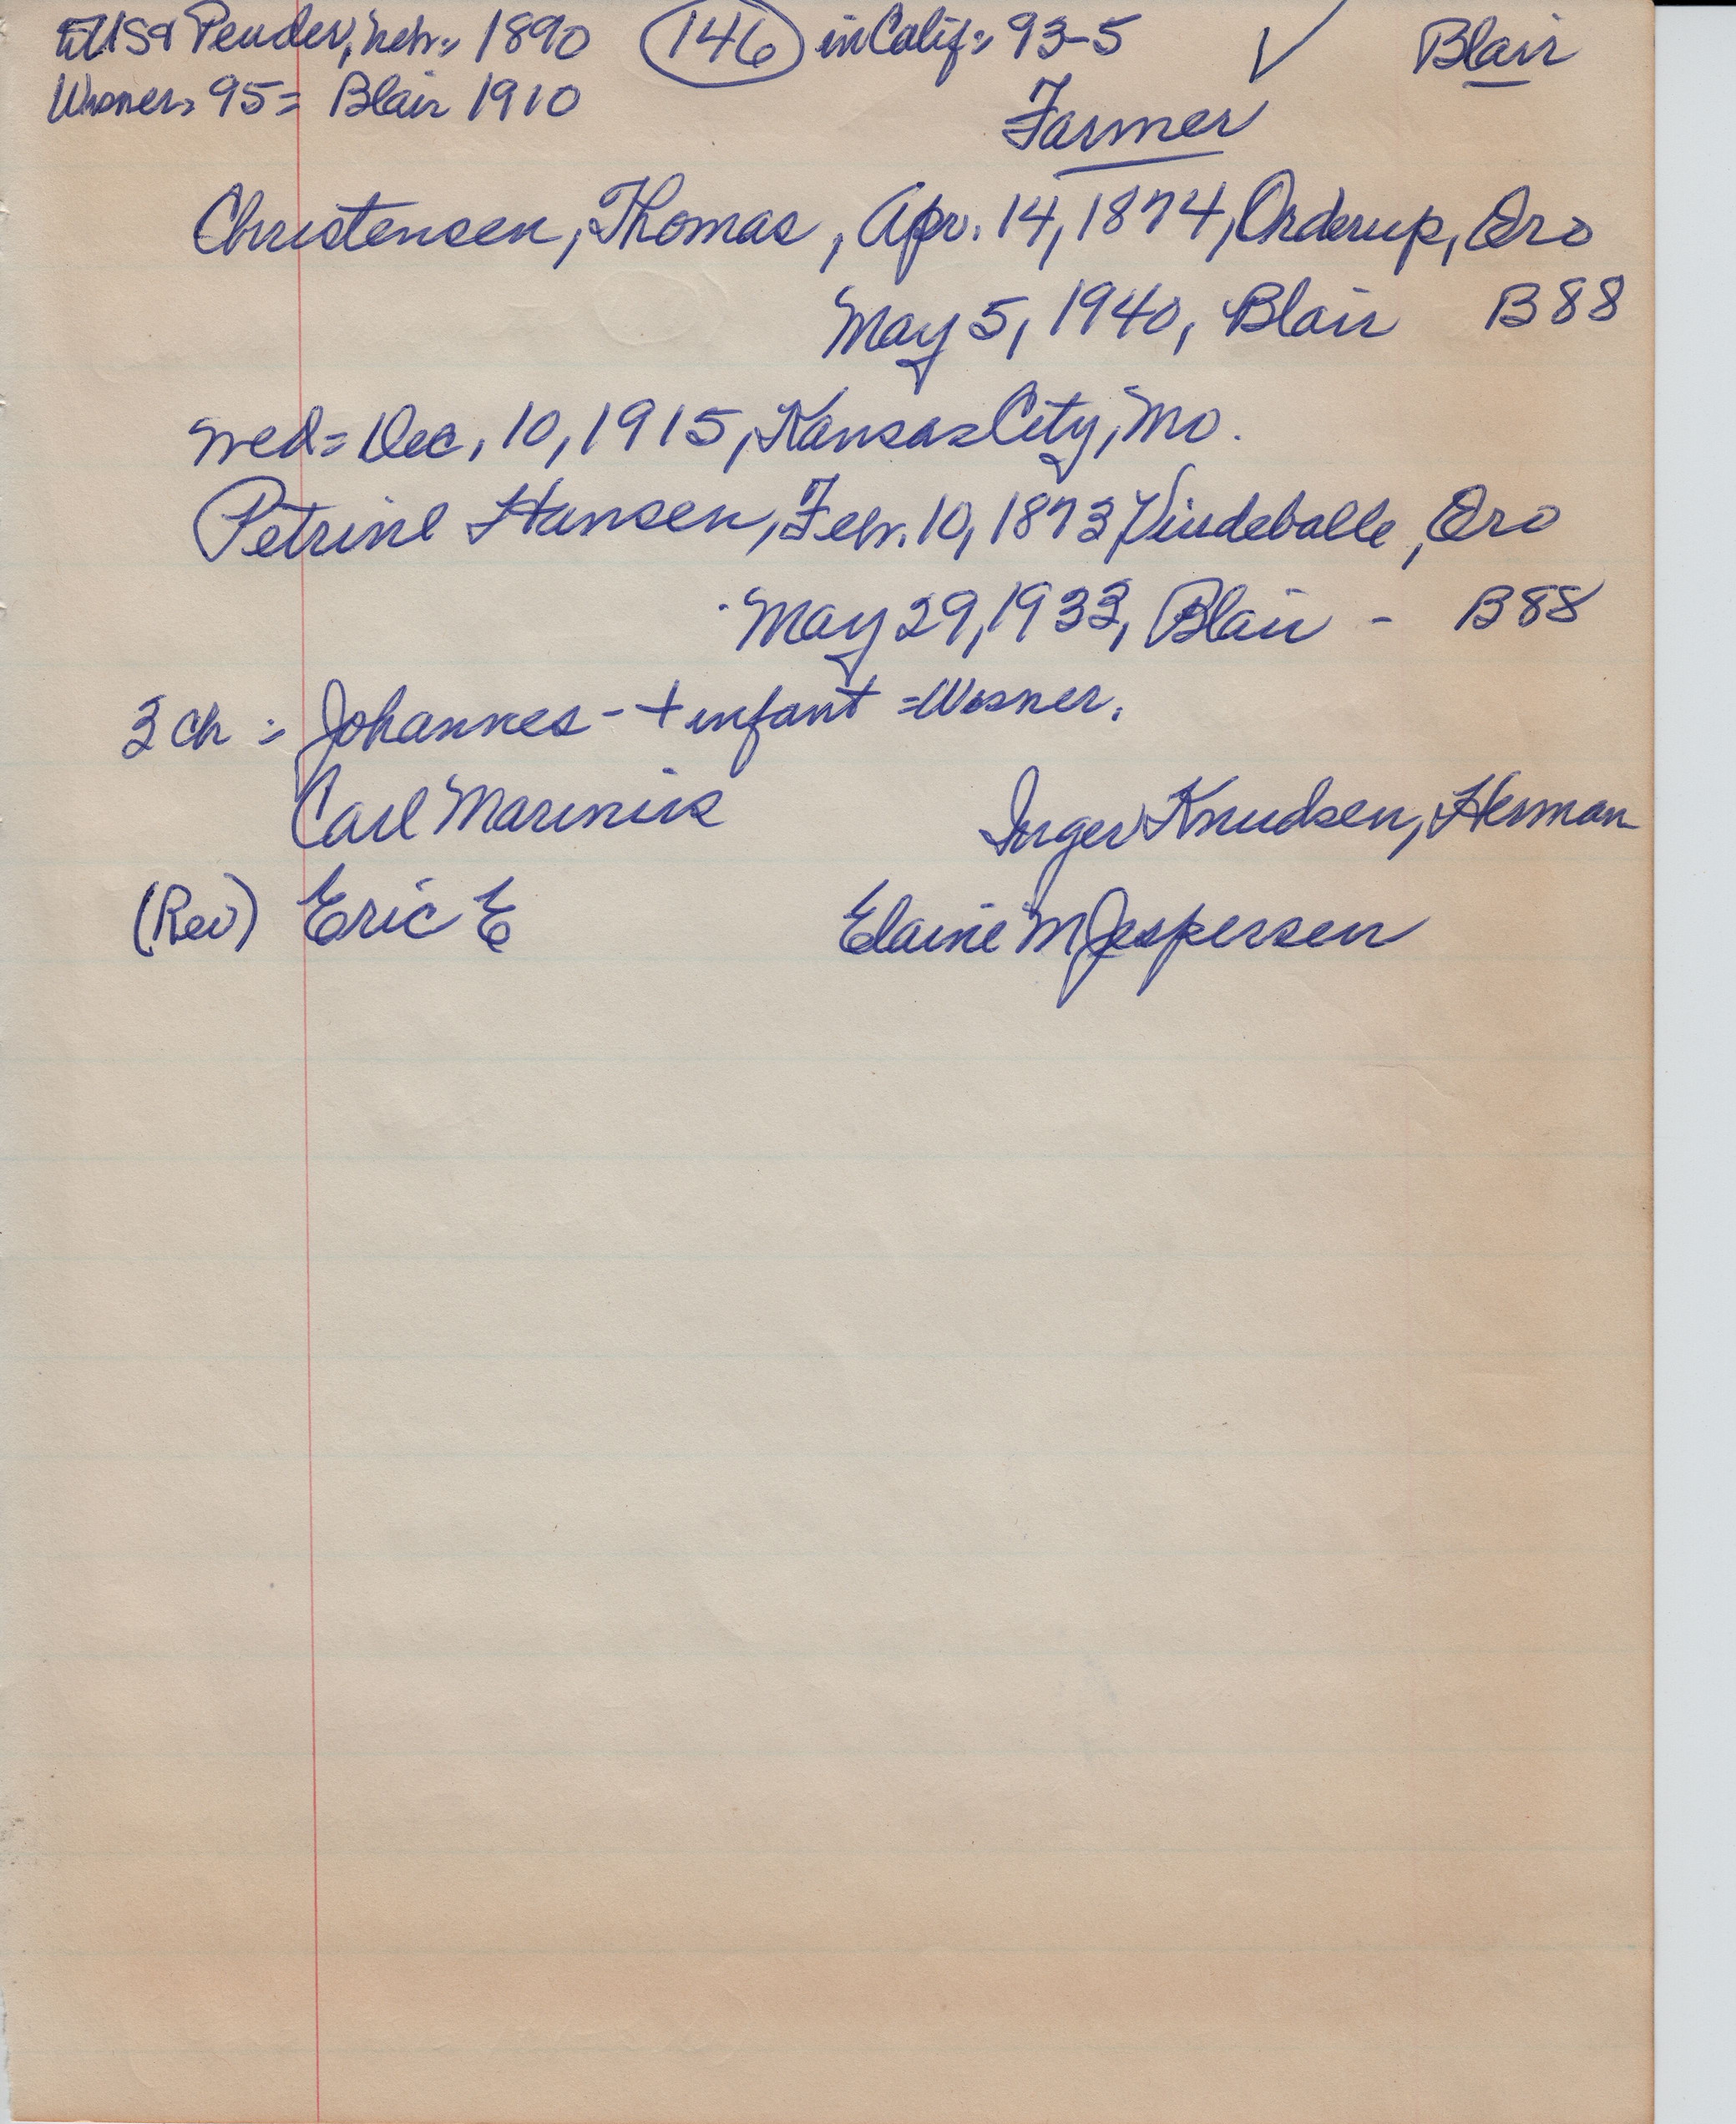 to USA Pender, Nebr= 1890 (146) in Calif= 93-5 ✓ Blair
Wisner= 95= Blair 1910
Farmer
Christensen, Thomas, Apr. 14, 1874, Orderup, Øro
May 5, 1940, Blair B88
wed= Dec, 10, 1915, Kansas City, Mo.
Petrine Hansen, Febr. 10, 1873 Vindeballe, Øro
May 29, 1933, Blair - B88
3 ch = Johannes - + infant = Wisner.
Carl Marinius Inger Knudsen, Herman
(Rev) Eric E Elaine M Jespersen